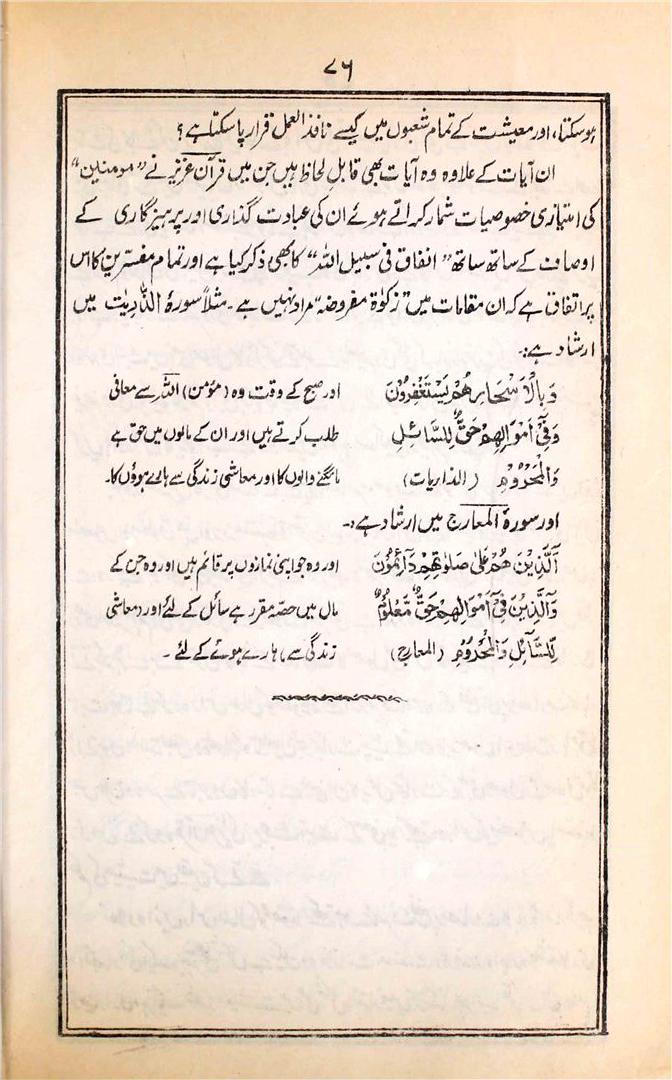 ۷۶
ہوسکتا، اور معیشت کے تمام شعبوں میں کیسے نافذ العمل قرار پا سکتا ہے؟
ان آیات کے علاوہ وہ آیات بھی قابلِ لحاظ ہیں جن میں قرآن عزیز نے "مومنین"
کی امتیازی خصوصیات شمار کراتے ہوئے ان کی عبادت گذاری اور پرہیزگاری کے
اوصاف کے ساتھ ساتھ "انفاق فی سبیل اللہ" کا بھی ذکر کیا ہے اور تمام مفسرین کا اس
پر اتفاق ہے کہ ان مقامات میں "زکوٰۃ مفروضہ" مراد نہیں ہے۔ مثلاً سورۂ الذّٰریٰت میں
ارشاد ہے:۔
وَبِالْاَسْحَارِ هُمْ يَسْتَغْفِرُوْنَ اور صبح کے وقت وہ (مؤمن) اللہ سے معافی
وَفِيْٓ اَمْوَالِهِمْ حَقٌّ لِّلسَّآئِلِ طلب کرتے ہیں اور ان کے مالوں میں حق ہے
وَالْمَحْرُوْمِ (الذاریات) مانگنے والوں کا اور معاشی زندگی سے ہارے ہوؤں کا۔
اور سورۃ المعارج میں ارشاد ہے:۔
اَلَّذِيْنَ هُمْ عَلٰى صَلٰوتِهِمْ دَآئِمُوْنَ اور وہ جو اپنی نمازوں پر قائم ہیں اور وہ جن کے
وَالَّذِيْنَ فِيْٓ اَمْوَالِهِمْ حَقٌّ مَّعْلُوْمٌ مال میں حصّہ مقرر ہے سائل کے لئے اور (معاشی
لِّلسَّآئِلِ وَالْمَحْرُوْمِ (المعارج) زندگی سے) ہارے ہوئے کے لئے۔